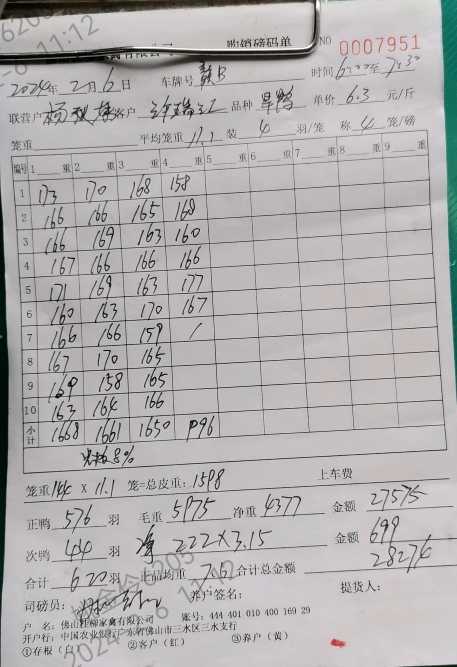 购销磅码单 NO 0007951
2024年 2月 6日 车牌号 时间 6:00至7:30
联营户 客户 品种 旱鸭 单价 6.3 元/斤
笼重 平均笼重 11.1 装 4 羽/笼 称 4 笼/磅
编号 1 重 2 重 3 重 4 重 5 重 6 重 7 重 8 重 9 重
1 173 170 168 158
2 166 166 165 168
3 166 169 163 160
4 167 166 166 166
5 171 169 163 177
6 160 163 170 167
7 166 166 159 /
8 167 170 165
9 169 158 165
10 163 164 166
小计 1668 1661 1650 1096
8%
笼重 144 X 11.1 笼=总皮重: 1598 上车费
正鸭 576 羽 毛重 5975 净重 4377 金额 27575
次鸭 44 羽 222X3.15 金额 699
合计 620 羽 均重 7.6 合计总金额 28274
司磅员: 养户签名: 提货人:
户 名: 佛山桂柳家禽有限公司 账号: 444 401 010 400 169 29
开户行: 中国农业银行广东省佛山市三水区三水支行
①存根 (白) ②客户 (红) ③养户 (黄)